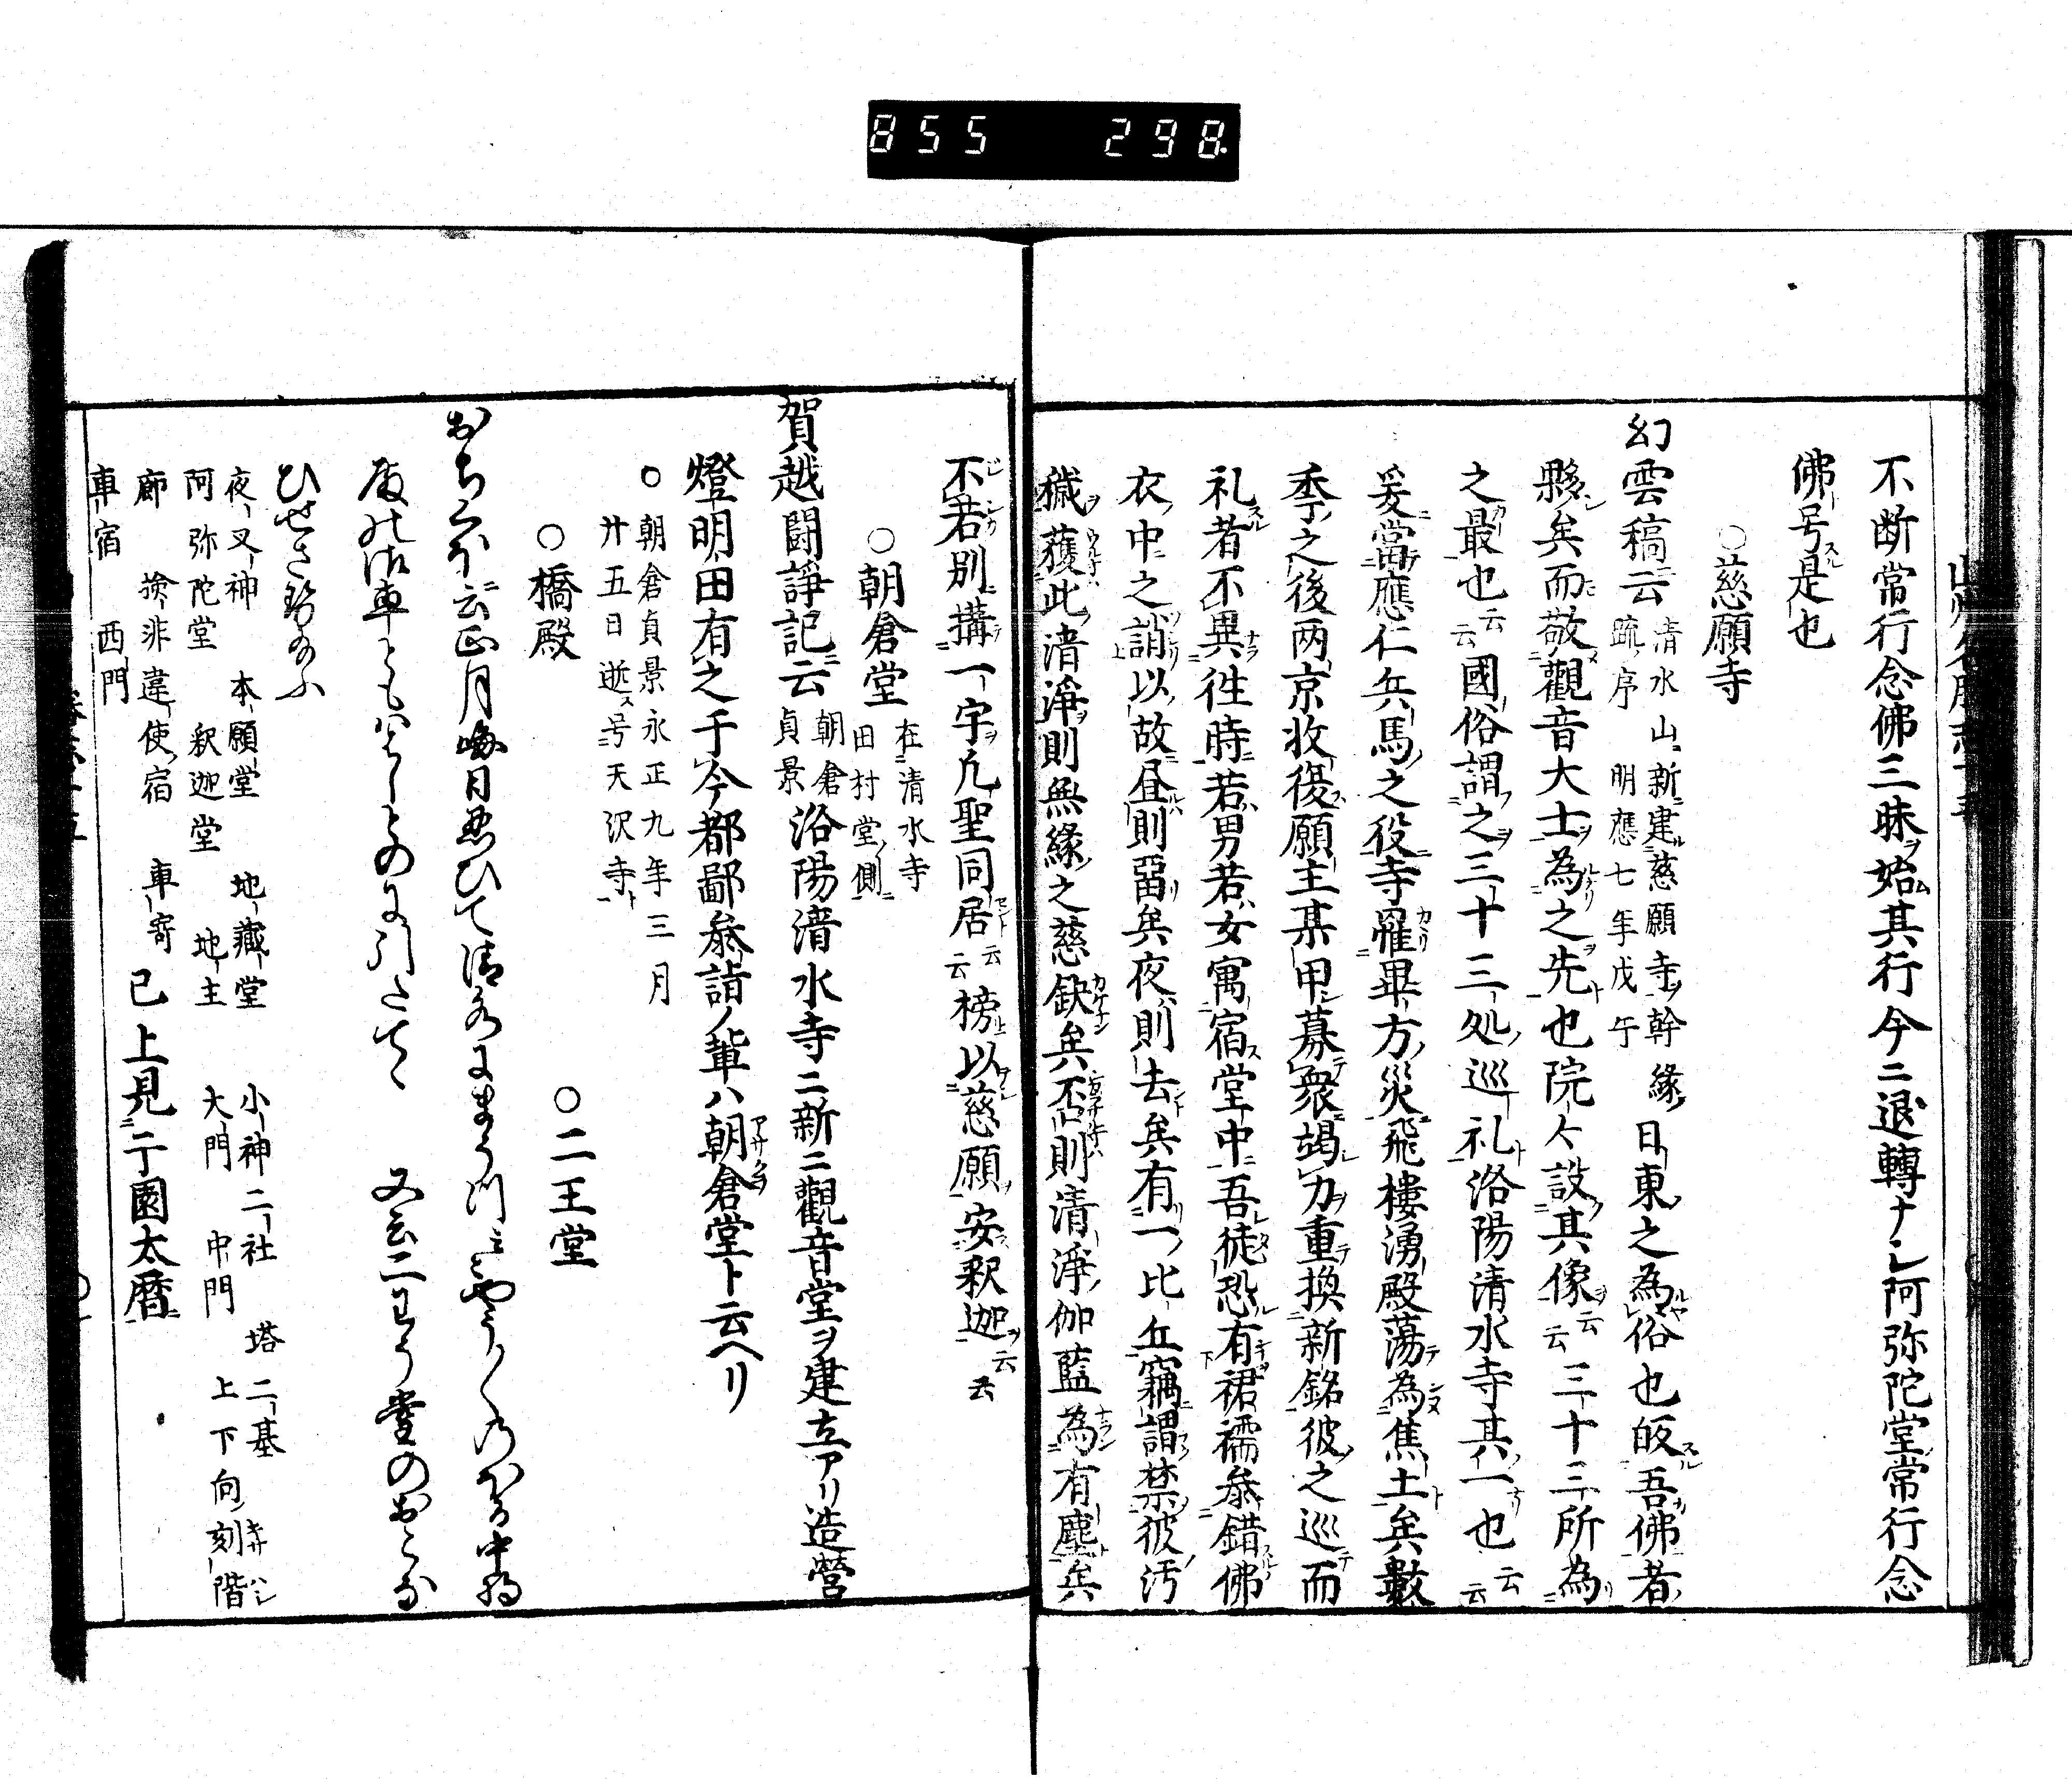 855 298
不断常行念佛三昧ヲ始ム其行今ニ退轉ナシ阿弥陀堂常行念
佛号スル是也
○慈願寺
幻雲稿云 清水山新建慈願寺幹縁
疏序 明應七年戊午
日東之為俗也皈吾佛者
夥矣而敬觀音大士為之先也院々設其像云云三十三所為
之最也云云國俗謂之三十三処巡礼洛陽清水寺其一也云云
爰當應仁兵馬之役寺罹畢方災飛樓湧殿蕩為焦土矣數
季之後两京收復願主某甲募衆竭力重換新銘彼之巡而
礼者不異徃時若男若女寓宿堂中吾徒恐有裙襦叅錯佛
衣中之誚以故昼則畄矣夜則去矣有一比丘竊謂禁彼汚
穢蔭此清淨則無緣之慈缺矣否則清淨伽藍為有塵矣
不若別搆一宇凢聖同居云云榜以慈願安釈迦云云
○朝倉堂 在清水寺
田村堂ノ側
賀越闘諍記云 朝倉
貞景
洛陽清水寺ニ新ニ觀音堂ヲ建立アリ造營
燈明田有之于今都鄙叅詣ノ輩ハ朝倉堂ト云ヘリ
○朝倉貞景永正九年三月
廿五日逝ス号天沢寺
○橋殿 ○二王堂
おちくほ云正月晦日忍ひて清水にまうつ三やう〳〵のほる中納
殿の御車ともはしとのに引たてゝ 又云二わう堂のおくな
ひせさせ給ふ
夜叉神 本願堂 地藏堂 小神二社 塔二基
阿弥陀堂 釈迦堂 地主 大門 中門 上下向刻階
廊 撿非違使宿 車寄 已上見于園太暦
車宿 西門